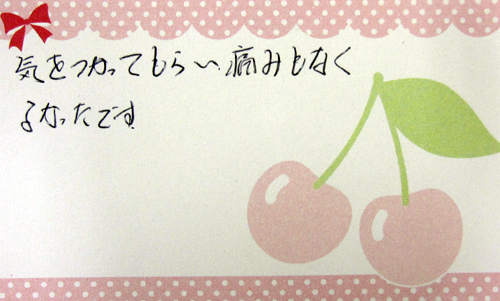 気をつかってもらい、痛みもなく
よかったです